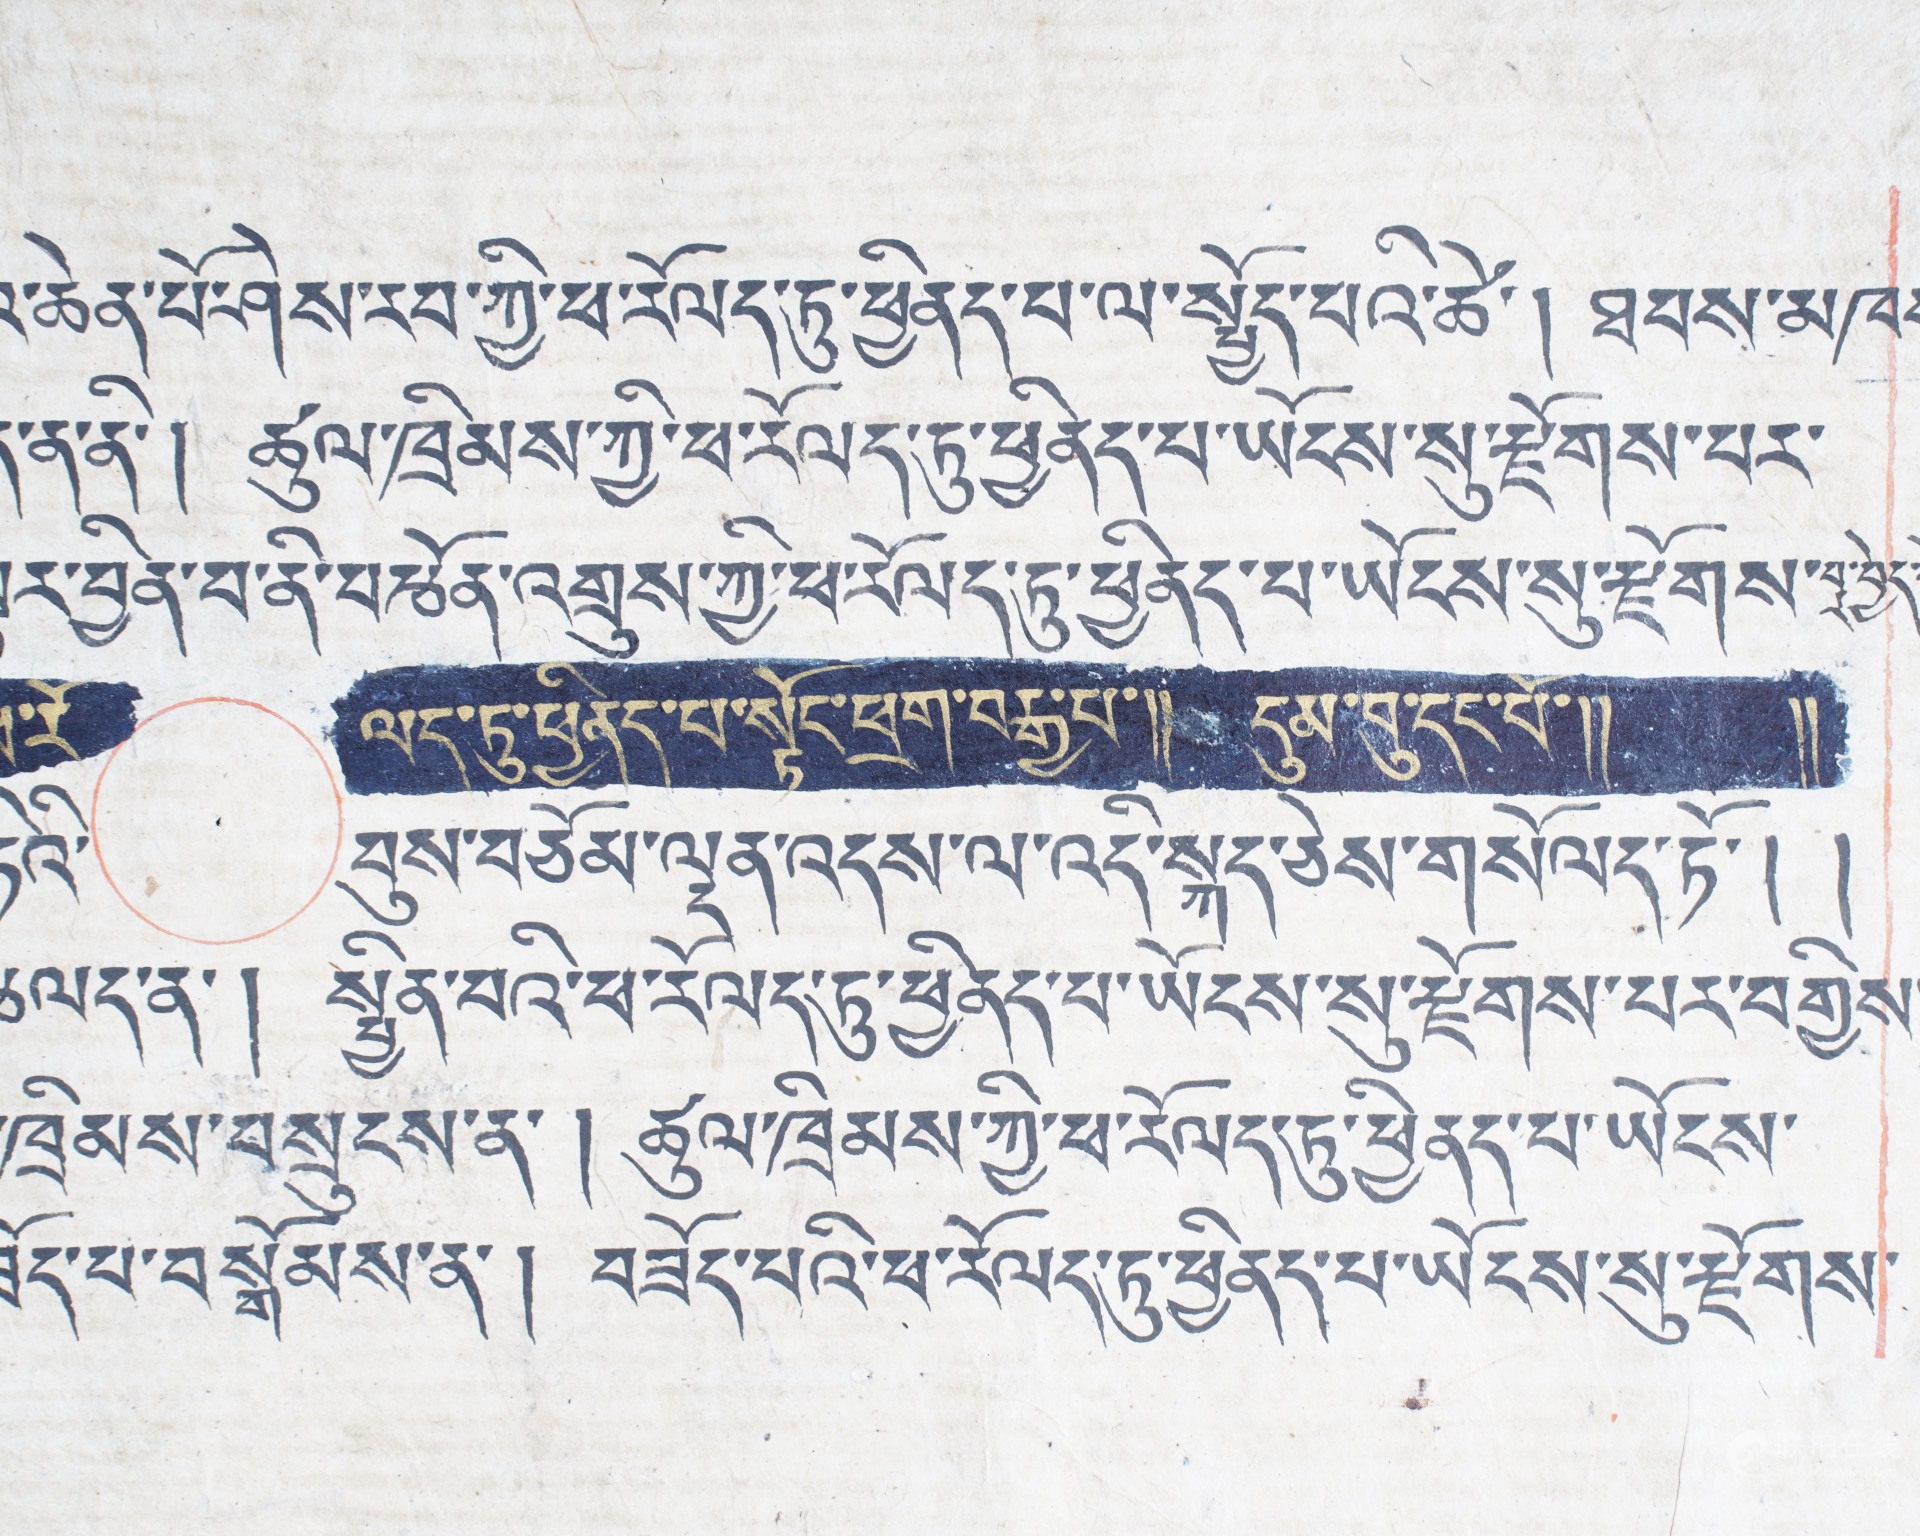 ཆེན་པོ་ཤེས་རབ་ཀྱི་ཕ་རོལད་ཏུ་ཕྱིནད་པ་ལ་སྤྱོད་པའི་ཚེ་། ཐབས་མཁ
ན་ནི། ཚུལ་ཁྲིམས་ཀྱི་ཕ་རོལད་ཏུ་ཕྱིནད་པ་ཡོངས་སུ་རྫོགས་པར་
བྱིན་བ་ནི་བརྩོན་འགྲུས་ཀྱི་ཕ་རོལད་ཏུ་ཕྱིནད་པ་ཡོངས་སུ་རྫོགས་
ཕ་རོ ལད་ཏུ་ཕྱིནད་པ་སྟོང་ཕྲག་བརྒྱ་པ༎ དུམ་བུ་དང་པོ༎ ༎
བུས་བཅོམ་ལྡན་འདས་ལ་འདི་སྐད་ཅེས་གསོལད་ཏོ། །
ཚལད་ན། སྦྱིན་བའི་ཕ་རོལད་ཏུ་ཕྱིནད་པ་ཡོངས་སུ་རྫོགས་པར་བགྱིས་
ཁྲིམས་བསྲུངས་ན། ཚུལ་ཁྲིམས་ཀྱི་ཕ་རོལད་ཏུ་ཕྱིནད་པ་ཡོངས་
བཟོད་པ་བསྒོམས་ན། བཟོད་པའི་ཕ་རོལད་ཏུ་ཕྱིནད་པ་ཡོངས་སུ་རྫོགས་